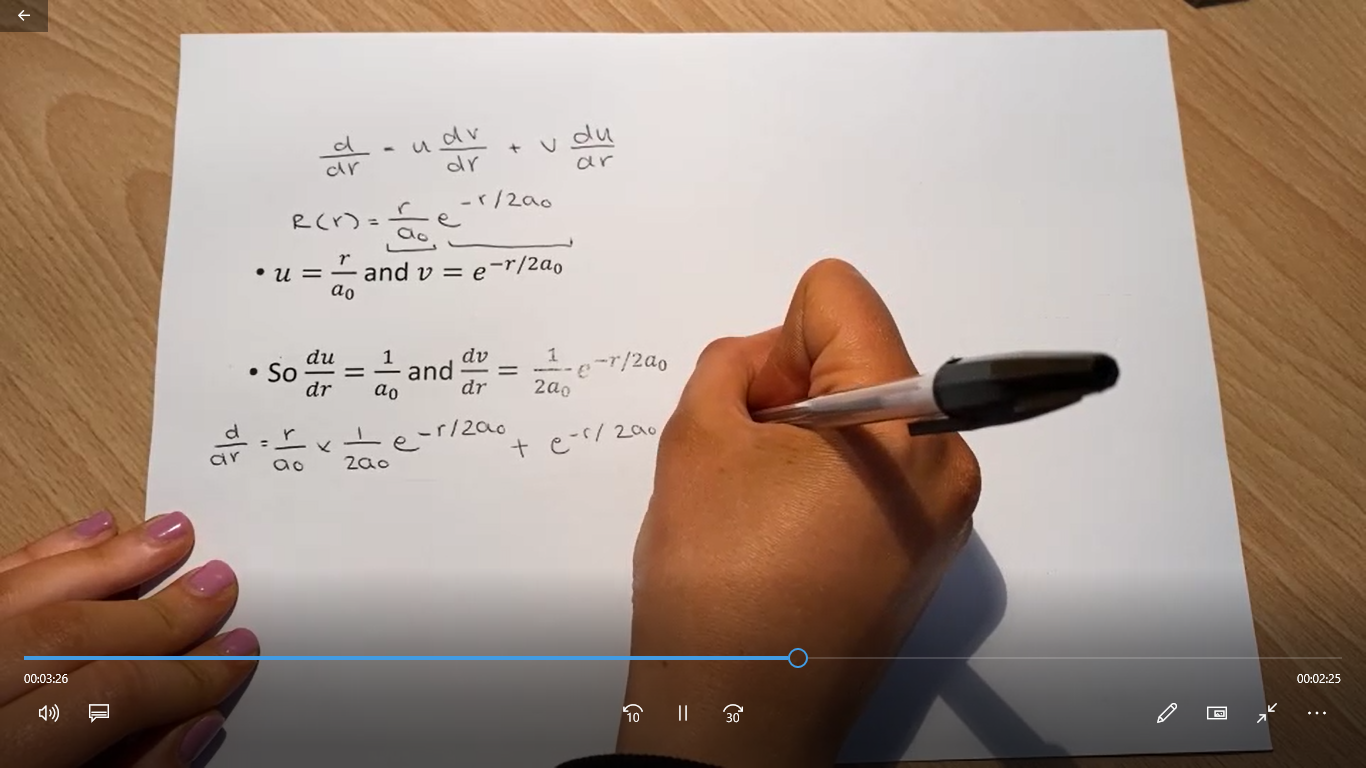 d/dr = u dv/dr + v du/dr
R(r) = r/a₀ e^(-r/2a₀)
• u = r/a₀ and v = e^(−r/2a₀)
• So du/dr = 1/a₀ and dv/dr = 1/2a₀ e^(−r/2a₀)
d/dr = r/a₀ × 1/2a₀ e^(-r/2a₀) + e^(-r/2a₀)
00:03:26 00:02:25
10 30